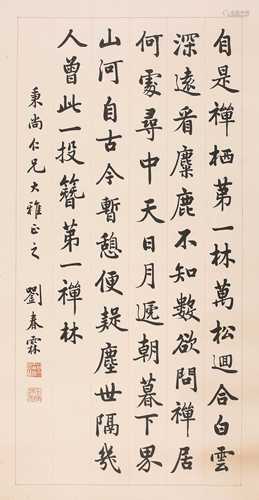 自是禪栖第一林萬松迴合白雲
深遠看麋鹿不知數欲問禪居
何處尋中天日月遞朝暮下界
山河自古今暫憩便疑塵世隔幾
人曾此一投簪第一禪林
秉尚仁兄大雅正之
劉春霖